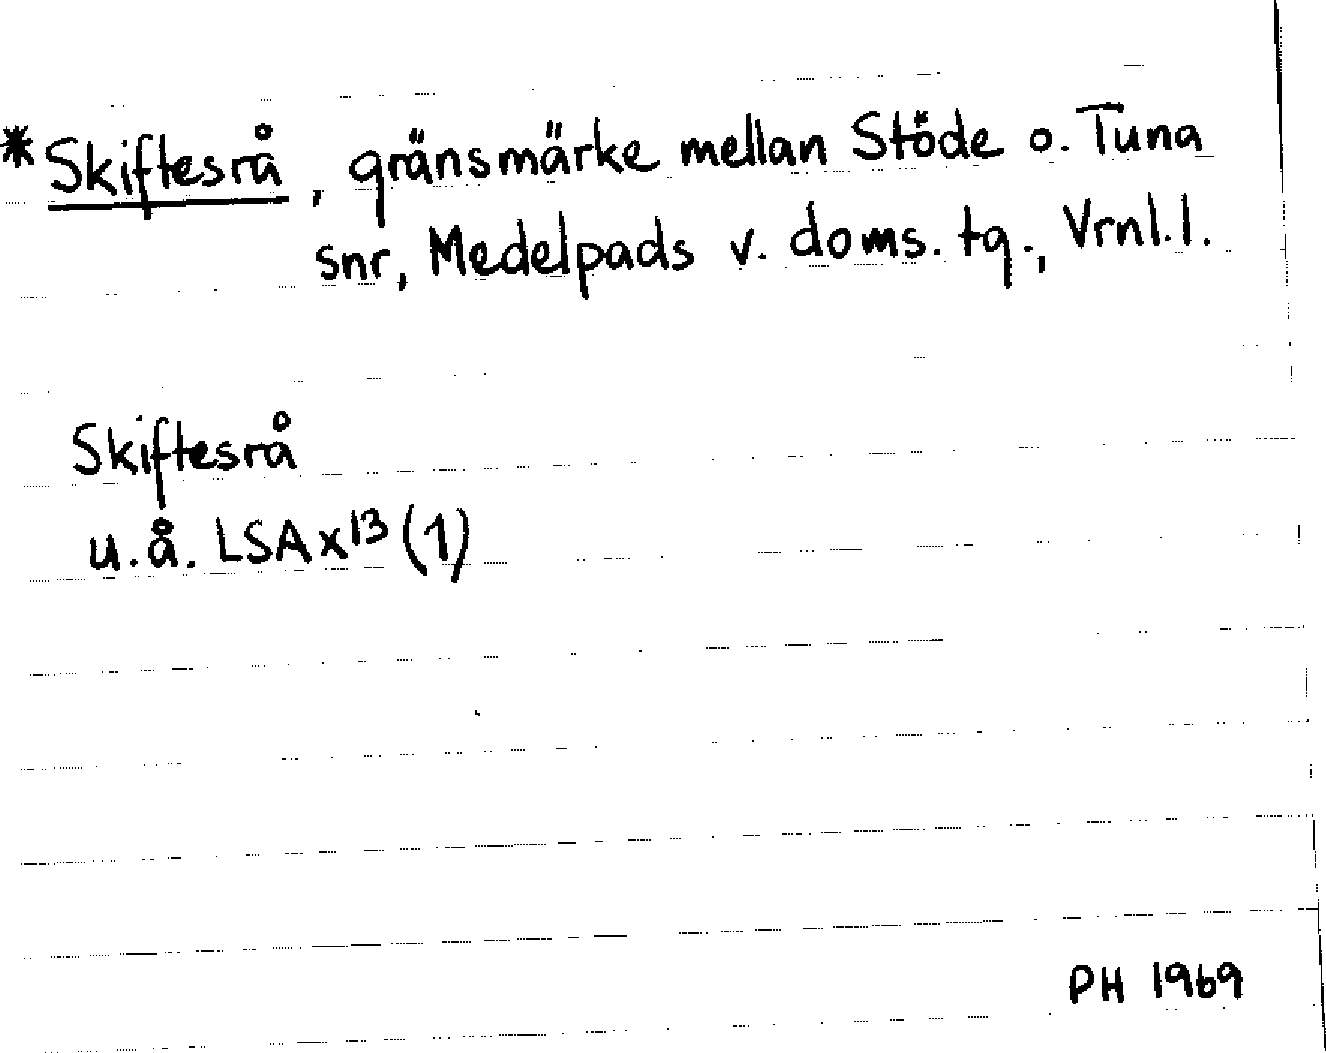 *Skiftesrå, gränsmärke mellan Stöde o. Tuna
snr, Medelpads v. doms. tg., Vrnl.l.
Skiftesrå
u.å. LSA x13 (1)
PH 1969